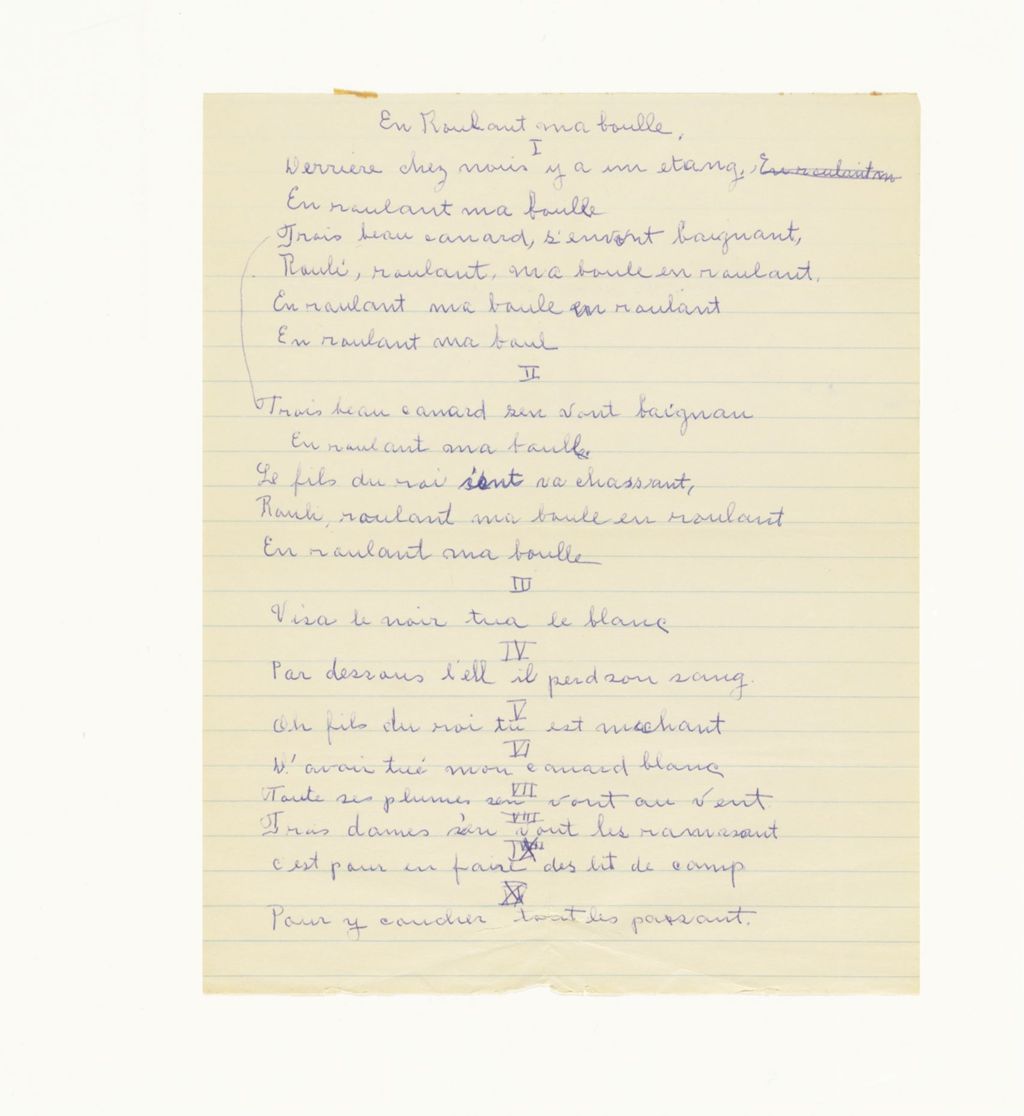 En Roulant ma boulle.
I
Derriere chez nous y a un etang, En roulant m
En roulant ma boulle
Trois beau canard, s'envont baignant,
Rouli, roulant, ma boule en roulant.
En roulant ma boule en roulant
En roulant ma boul
II
Trois beau canard sen vont baignan
En roulant ma boull.
Le fils du roi s'ent va chassant,
Rouli, roulant ma boule en roulant
En roulant ma boulle
III
Visa le noir tua le blanc
IV
Par dessous l'ell il perd son sang.
V
Oh fils du roi tu est mechant
VI
D'avoir tué mon canard blanc
VII
Toute ses plumes sen vont au vent
VIII
Trois dames s'en vont les ramasant
IX
c'est pour en faire des lit de camp
X
Pour y coucher tout les passant.